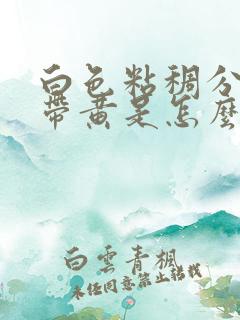 白色粘稠分
带黄是怎么
白雲青楓
未经同意禁止转载